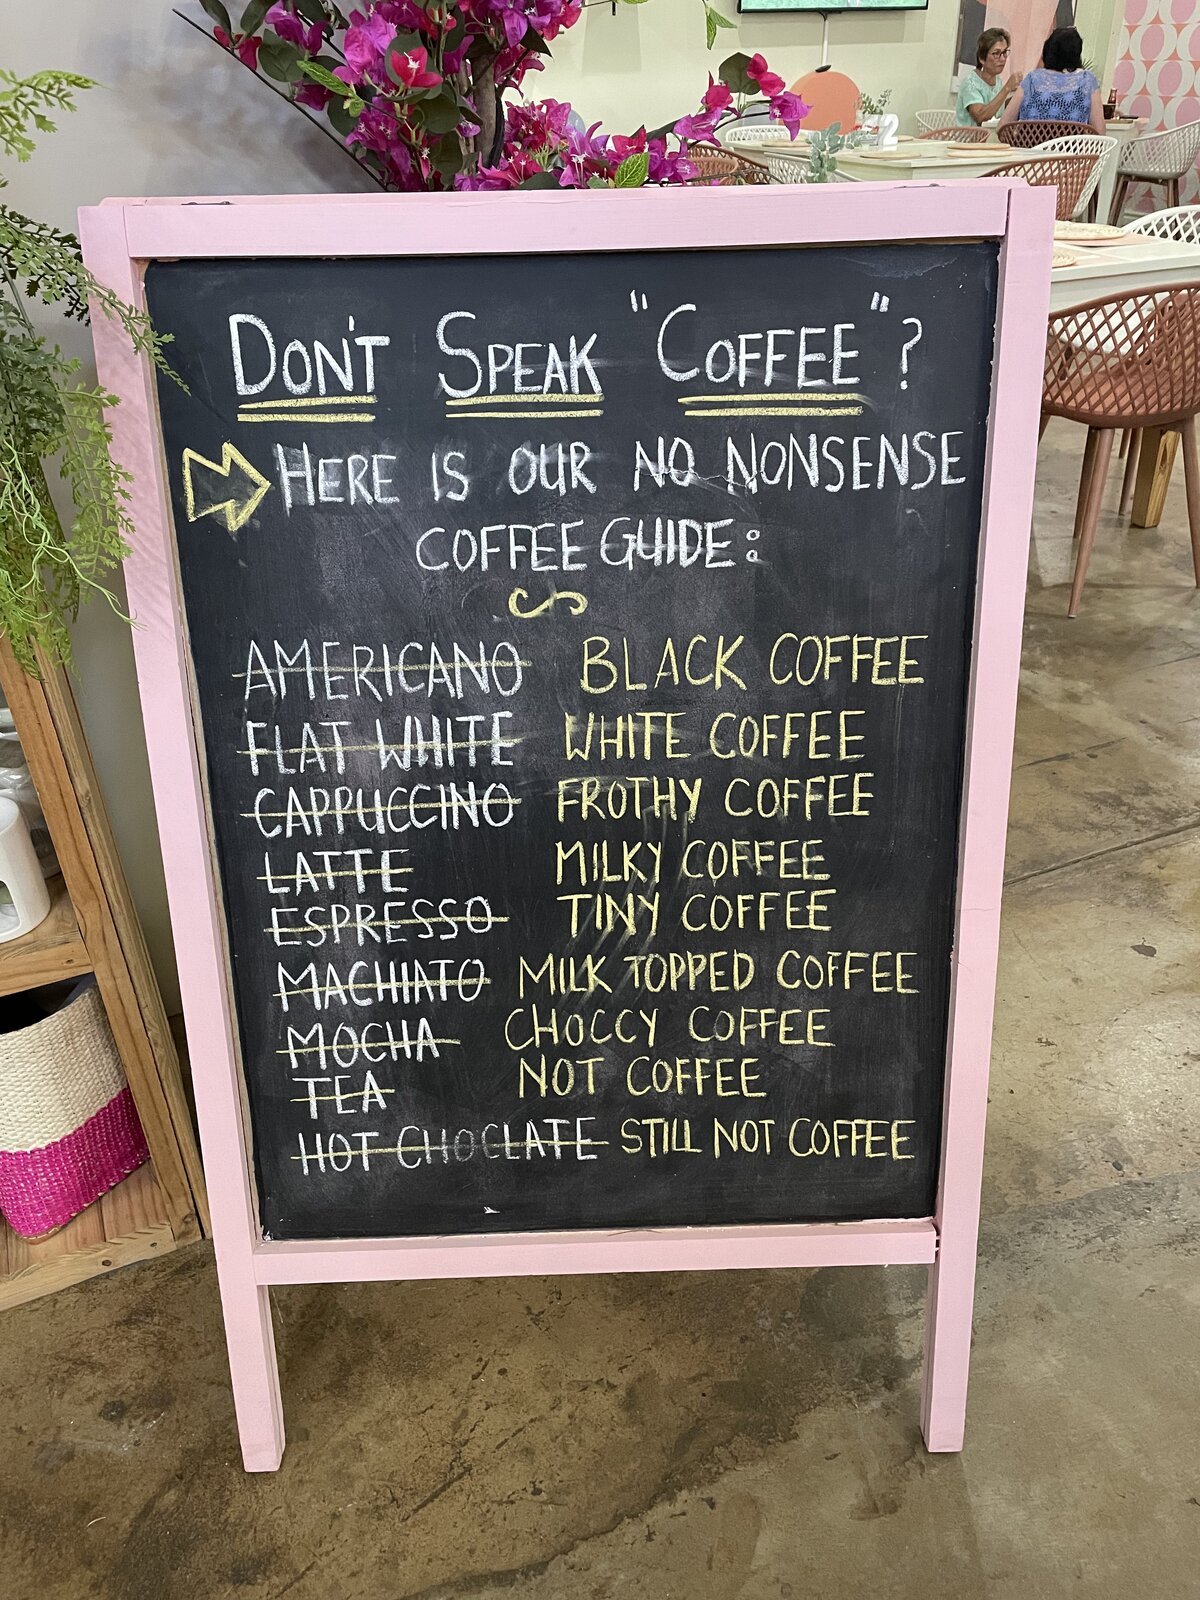 DON'T SPEAK "COFFEE"?
HERE IS OUR NO NONSENSE
COFFEE GUIDE:
AMERICANO BLACK COFFEE
FLAT WHITE WHITE COFFEE
CAPPUCCINO FROTHY COFFEE
LATTE MILKY COFFEE
ESPRESSO TINY COFFEE
MACHIATO MILK TOPPED COFFEE
MOCHA CHOCCY COFFEE
TEA NOT COFFEE
HOT CHOCLATE STILL NOT COFFEE